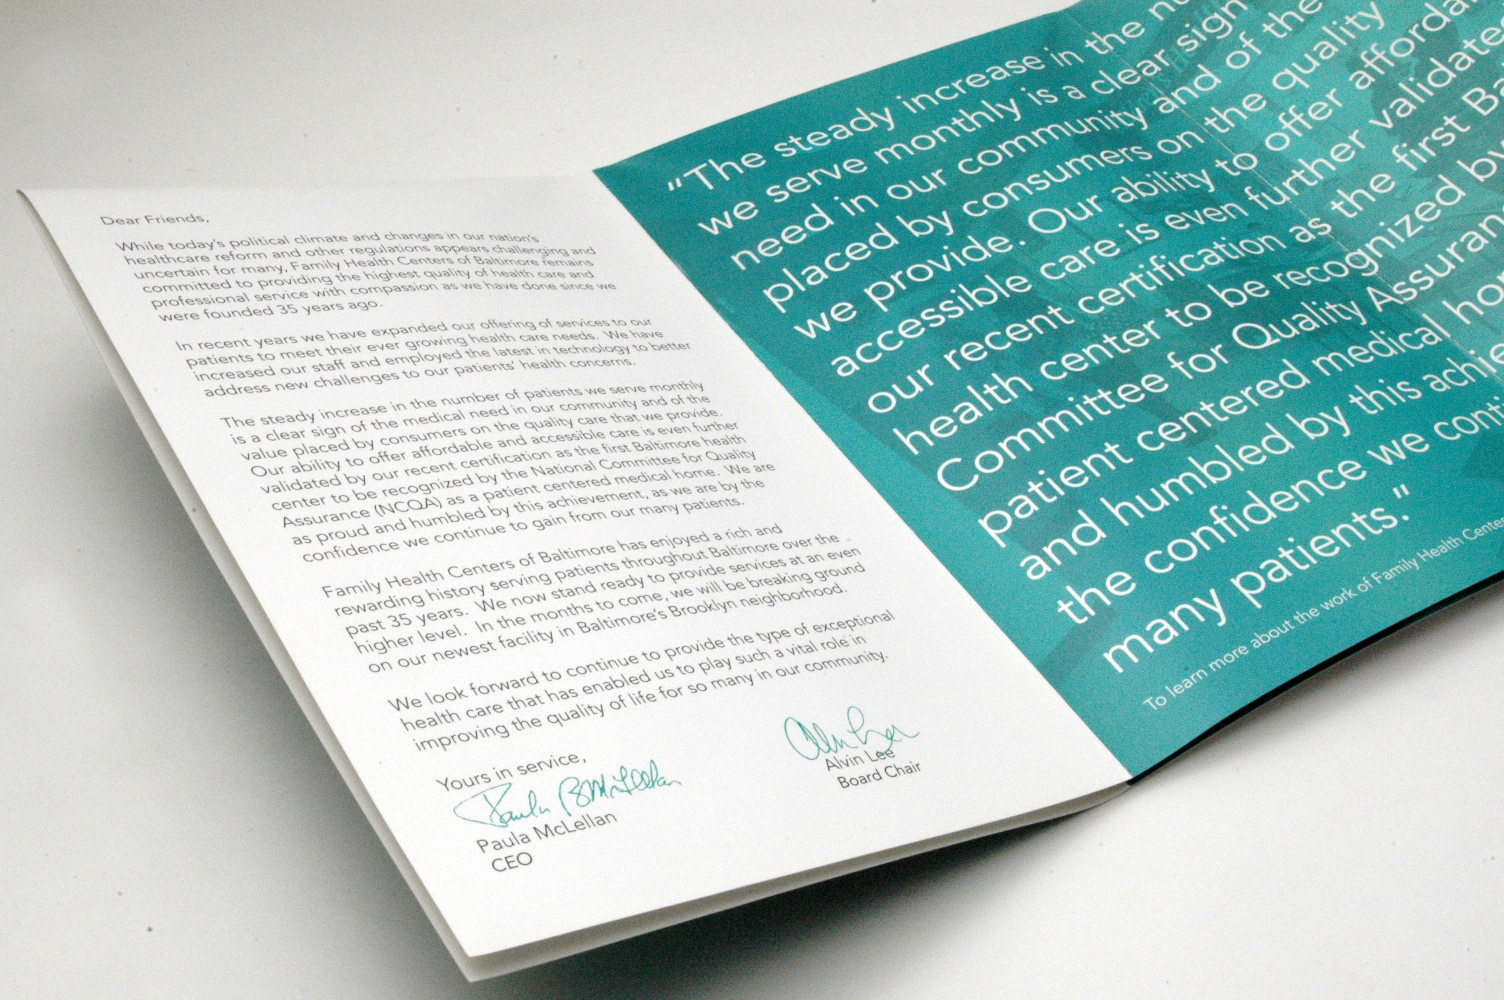 Dear Friends,
While today's political climate and changes in our nation's
healthcare reform and other regulations appears challenging and
uncertain for many, Family Health Centers of Baltimore remains
committed to providing the highest quality of health care and
professional service with compassion as we have done since we
were founded 35 years ago.
In recent years we have expanded our offering of services to our
patients to meet their ever growing health care needs. We have
increased our staff and employed the latest in technology to better
address new challenges to our patients' health concerns.
The steady increase in the number of patients we serve monthly
is a clear sign of the medical need in our community and of the
value placed by consumers on the quality care that we provide.
Our ability to offer affordable and accessible care is even further
validated by our recent certification as the first Baltimore health
center to be recognized by the National Committee for Quality
Assurance (NCQA) as a patient centered medical home. We are
as proud and humbled by this achievement, as we are by the
confidence we continue to gain from our many patients.
Family Health Centers of Baltimore has enjoyed a rich and
rewarding history serving patients throughout Baltimore over the
past 35 years. We now stand ready to provide services at an even
higher level. In the months to come, we will be breaking ground
on our newest facility in Baltimore's Brooklyn neighborhood.
We look forward to continue to provide the type of exceptional
health care that has enabled us to play such a vital role in
improving the quality of life for so many in our community.
Yours in service,
Paula B McLellan
Paula McLellan
CEO
Alvin Lee
Alvin Lee
Board Chair
"The steady increase in the nu
we serve monthly is a clear sign
need in our community and of the
placed by consumers on the quality
we provide. Our ability to offer afforda
accessible care is even further validate
our recent certification as the first Ba
health center to be recognized by
Committee for Quality Assuran
patient centered medical ho
and humbled by this achie
the confidence we conti
many patients."
To learn more about the work of Family Health Center